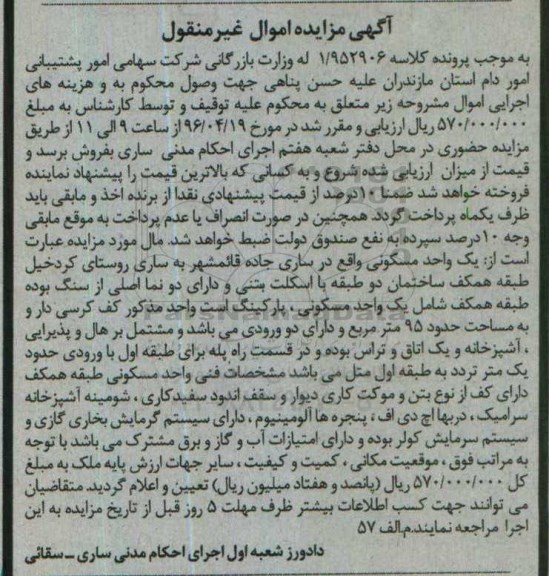 آگهی مزایده اموال غیرمنقول
به موجب پرونده کلاسه ۱/۹۵۲۹۰۶ له وزارت بازرگانی شرکت سهامی امور پشتیبانی
امور دام استان مازندران علیه حسن پناهی جهت وصول محکوم به و هزینه های
اجرایی اموال مشروحه زیر متعلق به محکوم علیه توقیف و توسط کارشناس به مبلغ
۵۷۰/۰۰۰/۰۰۰ ریال ارزیابی و مقرر شد در مورخ ۹۶/۰۴/۱۹ از ساعت ۹ الی ۱۱ از طریق
مزایده حضوری در محل دفتر شعبه هفتم اجرای احکام مدنی ساری بفروش برسد و
قیمت از میزان ارزیابی شده شروع و به کسانی که بالاترین قیمت را پیشنهاد نماینده
فروخته خواهد شد ضمنا ۱۰درصد از قیمت پیشنهادی نقدا از برنده اخذ و مابقی باید
ظرف یکماه پرداخت گردد. همچنین در صورت انصراف یا عدم پرداخت به موقع مابقی
وجه ۱۰درصد سپرده به نفع صندوق دولت ضبط خواهد شد. مال مورد مزایده عبارت
است از: یک واحد مسکونی واقع در ساری جاده قائمشهر به ساری روستای کردخیل
طبقه همکف ساختمان دو طبقه با اسکلت بتنی و دارای دو نما اصلی از سنگ بوده
طبقه همکف شامل یک واحد مسکونی ، پارکینگ است واحد مذکور کف کرسی دار و
به مساحت حدود ۹۵ متر مربع و دارای دو ورودی می باشد و مشتمل بر هال و پذیرایی
، آشپزخانه و یک اتاق و تراس بوده و در قسمت راه پله برای طبقه اول با ورودی حدود
یک متر تردد به طبقه اول متل می باشد مشخصات فنی واحد مسکونی طبقه همکف
دارای کف از نوع بتن و موکت کاری دیوار و سقف اندود سفیدکاری ، شومینه آشپزخانه
سرامیک ، دربها اچ دی اف ، پنجره ها آلومینیوم ، دارای سیستم گرمایش بخاری گازی و
سیستم سرمایش کولر بوده و دارای امتیازات آب و گاز و برق مشترک می باشد با توجه
به مراتب فوق ، موقعیت مکانی ، کمیت و کیفیت ، سایر جهات ارزش پایه ملک به مبلغ
کل ۵۷۰/۰۰۰/۰۰۰ ریال (پانصد و هفتاد میلیون ریال) تعیین و اعلام گردید. متقاضیان
می توانند جهت کسب اطلاعات بیشتر ظرف مهلت ۵ روز قبل از تاریخ مزایده به این
اجرا مراجعه نمایند.م/الف ۵۷
دادورز شعبه اول اجرای احکام مدنی ساری – سقائی